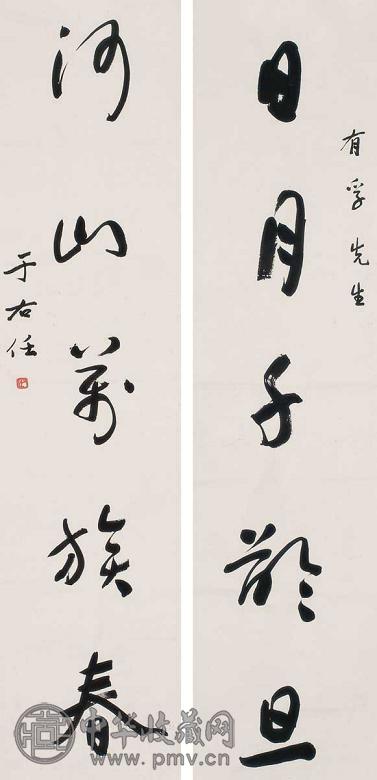 有孚先生
日月千龄旦
河山万族春
于右任
中华收藏网
www.pmv.cn